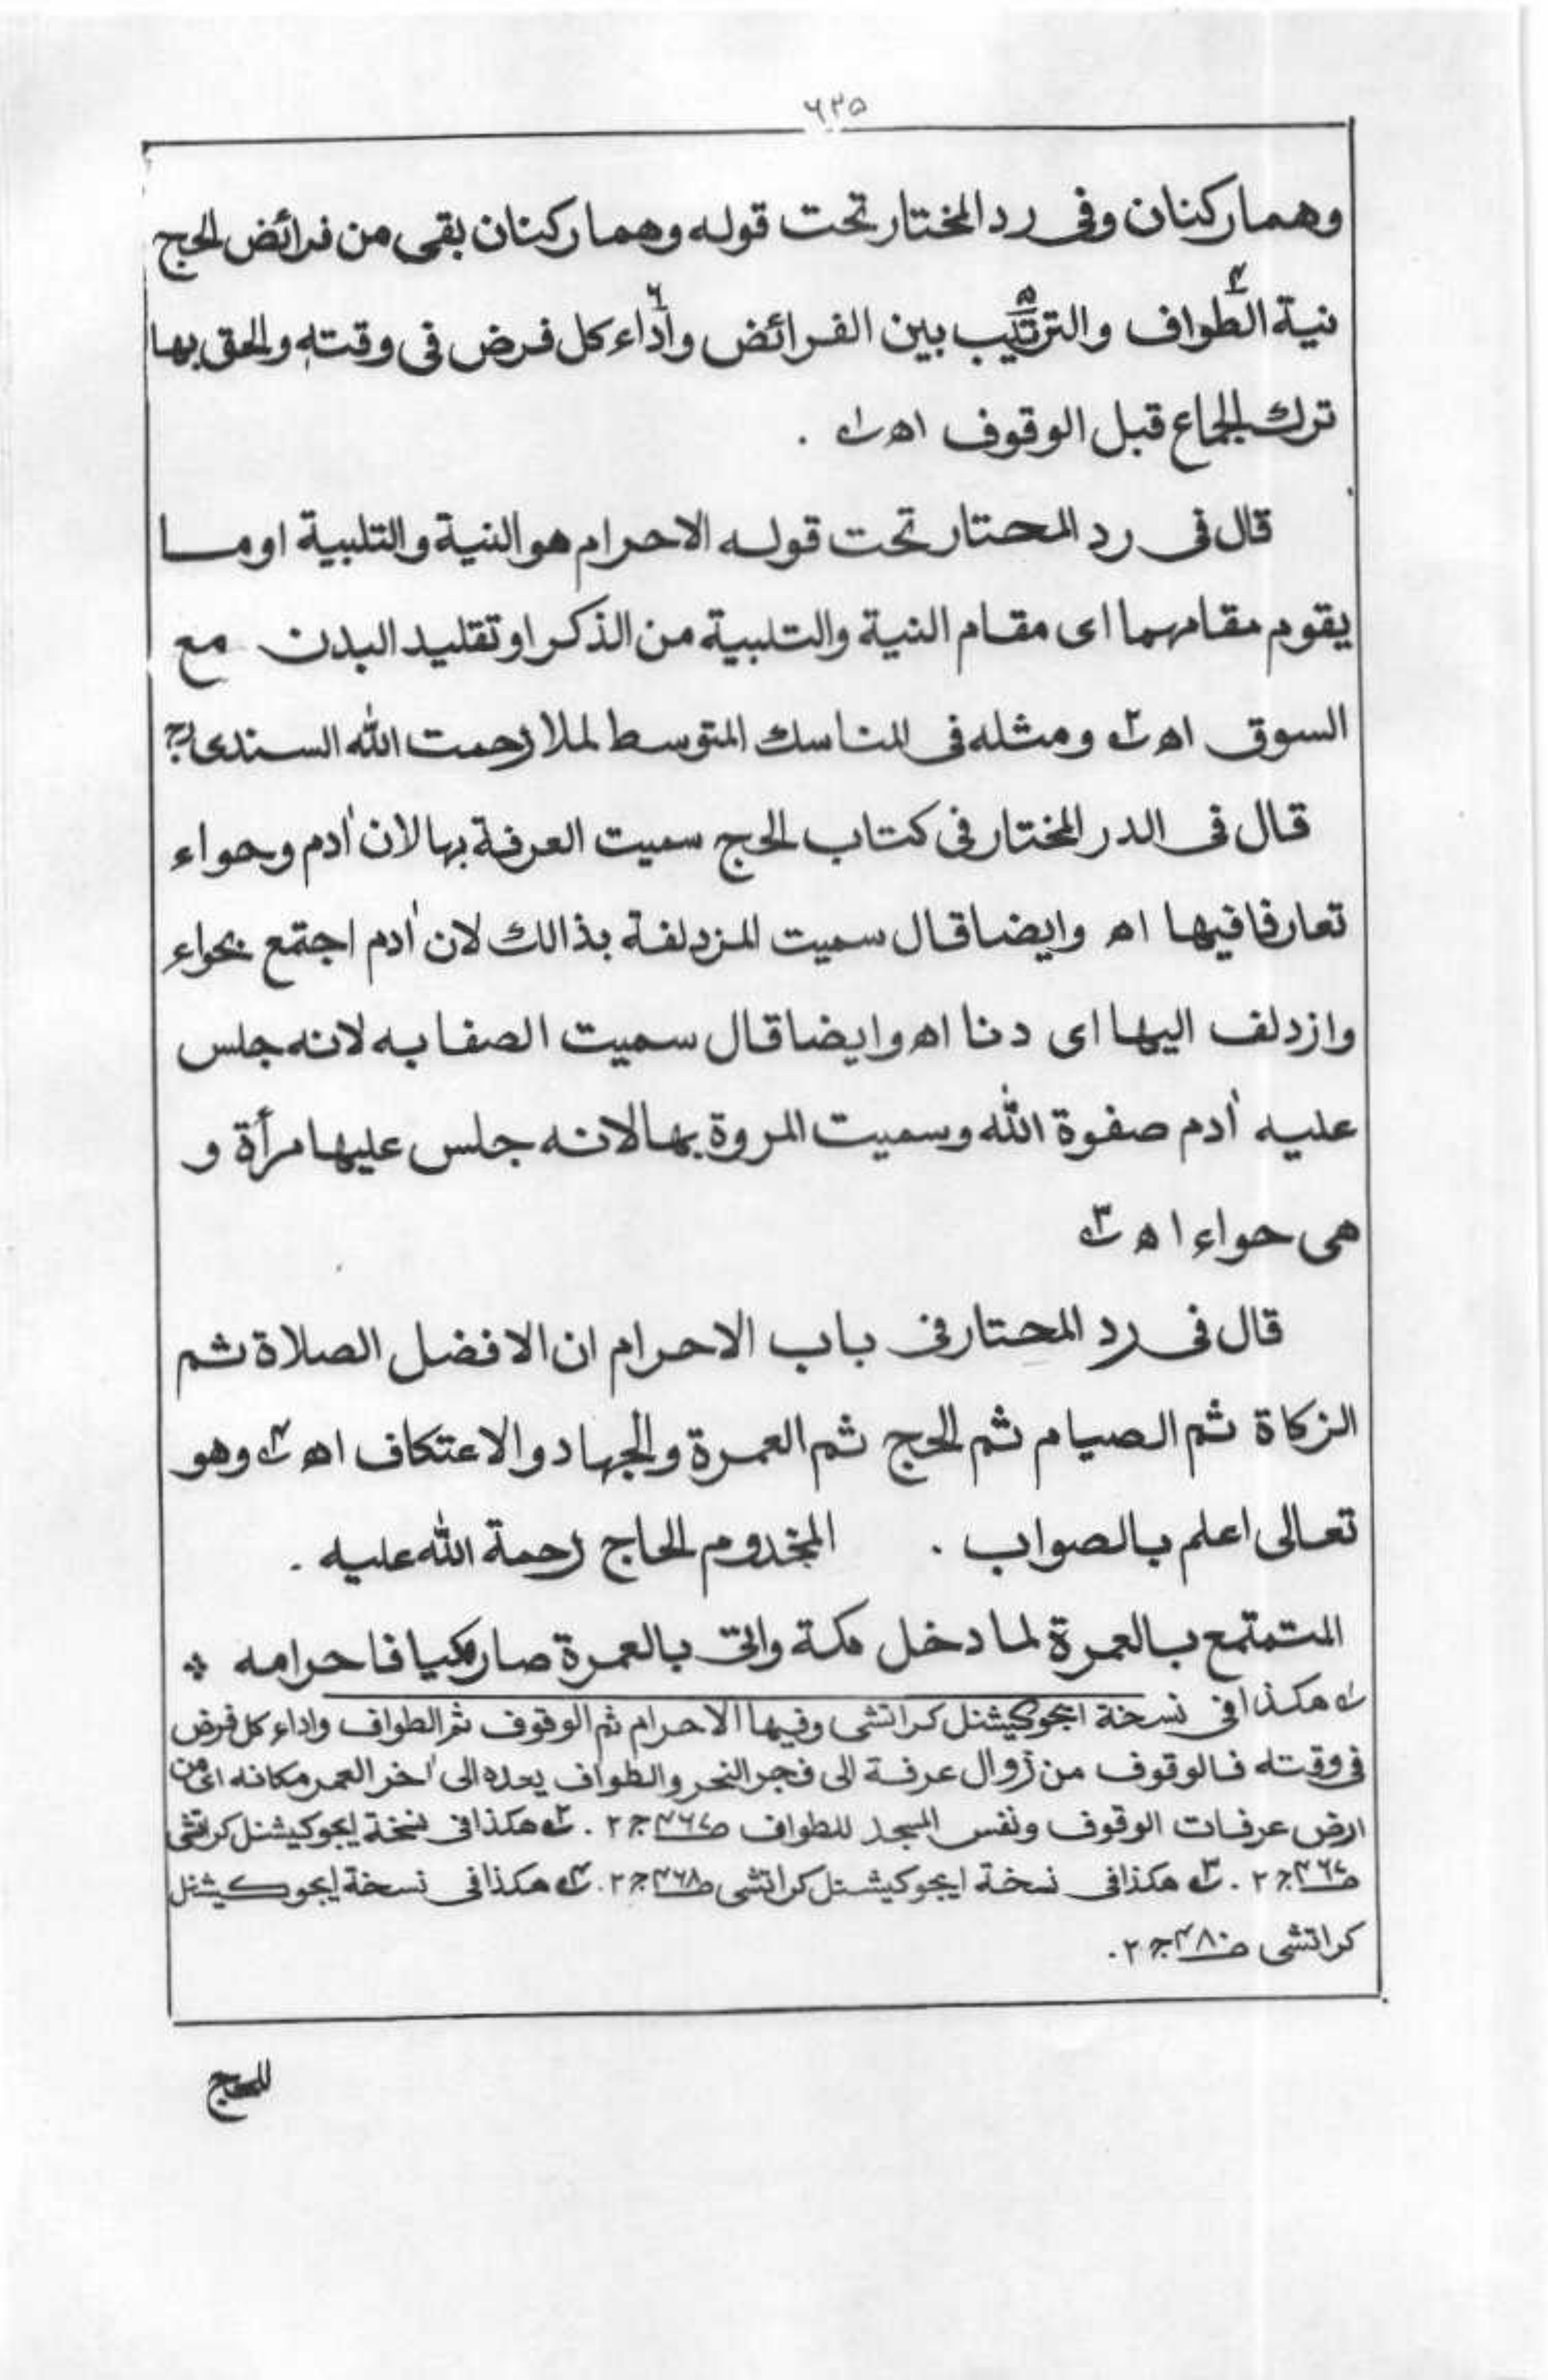 ٦٢٥
وهما ركنان وفى رد المختار تحت قوله وهما ركنان بقى من فرائض الحج
نية الطواف٤ والترتيب٥ بين الفرائض وأداء٦ كل فرض فى وقته والحق بها
ترك الجماع قبل الوقوف اھ ١ .
قال فى رد المحتار تحت قوله الاحرام هو النية والتلبية او ما
يقوم مقامهما اى مقام النية والتلبية من الذكر او تقليد البدن مع
السوق اھ ٢ ومثله فى المناسك المتوسط لملا رحمت الله السندى
قال فى الدر المختار فى كتاب الحج سميت العرفة بها لان اٰدم وحواء
تعارفا فيها اھ وايضا قال سميت المزدلفة بذالك لان اٰدم اجتمع بحواء
وازدلف اليها اى دنا اھ وايضا قال سميت الصفا به لانه جلس
عليه اٰدم صفوة الله وسميت المروة بها لانه جلس عليها مرأة و
هى حواء اھ ٣
قال فى رد المحتار فى باب الاحرام ان الافضل الصلاة ثم
الزكاة ثم الصيام ثم الحج ثم العمرة والجهاد والاعتكاف اھ ٤ وهو
تعالى اعلم بالصواب . المخدوم الحاج رحمة الله عليه .
المتمتع بالعمرة لما دخل مكة واتى بالعمرة صار مكيا فاحرامه *
١ هكذا فى نسخة ايجوكيشنل كراتشى وفيها الاحرام ثم الوقوف ثم الطواف واداء كل فرض
فى وقته فالوقوف من زوال عرفة الى فجر النحر والطواف بعده الى اٰخر العمر مكانه اى من
ارض عرفات الوقوف ونفس المسجد للطواف ص٤٦٧ ج ٢ . ٢ هكذا فى نسخة ايجوكيشنل كراتشى
ص٤٦٧ ج ٢ . ٣ هكذا فى نسخة ايجوكيشنل كراتشى ص٤٦٨ ج ٢ . ٤ هكذا فى نسخة ايجوكيشنل
كراتشى ص٤٨٠ ج ٢ .
للحج